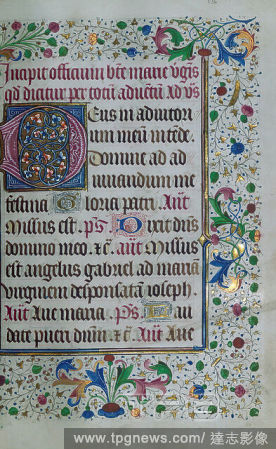 Incipit officium bte marie vgis
qd dicitur per totu aduentu ad vs
Deus in adiutori
um meu intende.
Domine ad ad
iuuandum me
festina Gloria patri. Ant
Missus est. ps Dixit dns
domino meo. zc. ant Missus
est angelus gabriel ad maria
virginem desponsata ioseph.
Ant Aue maria. Ps. Lau
date pueri dnm. zc Ant Aue
www.tpgnews.com/ 達志影像